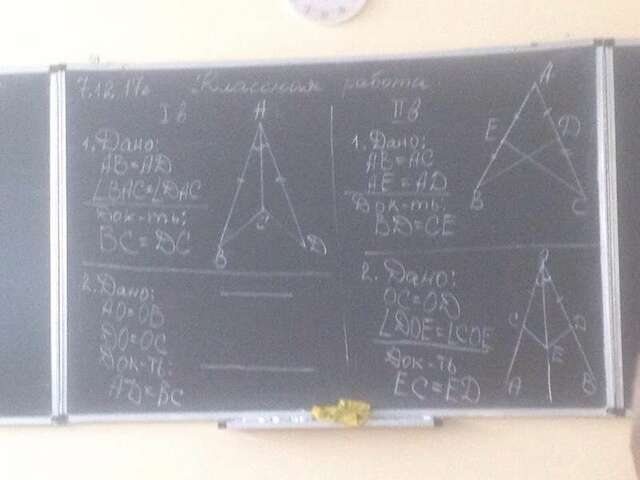 7.12.17г Классная работа
I в
1. Дано:
AB=AD
∠BAC=∠DAC
Док-ть:
BC=DC
A
C
B
D
2. Дано:
AO=OB
DO=OC
Док-ть:
AD=BC
II в
1. Дано:
AB=AC
AE=AD
Док-ть:
BD=CE
A
E
D
B
C
2. Дано:
OC=OD
∠DOE=∠COE
Док-ть
EC=ED
O
C
D
E
A
B